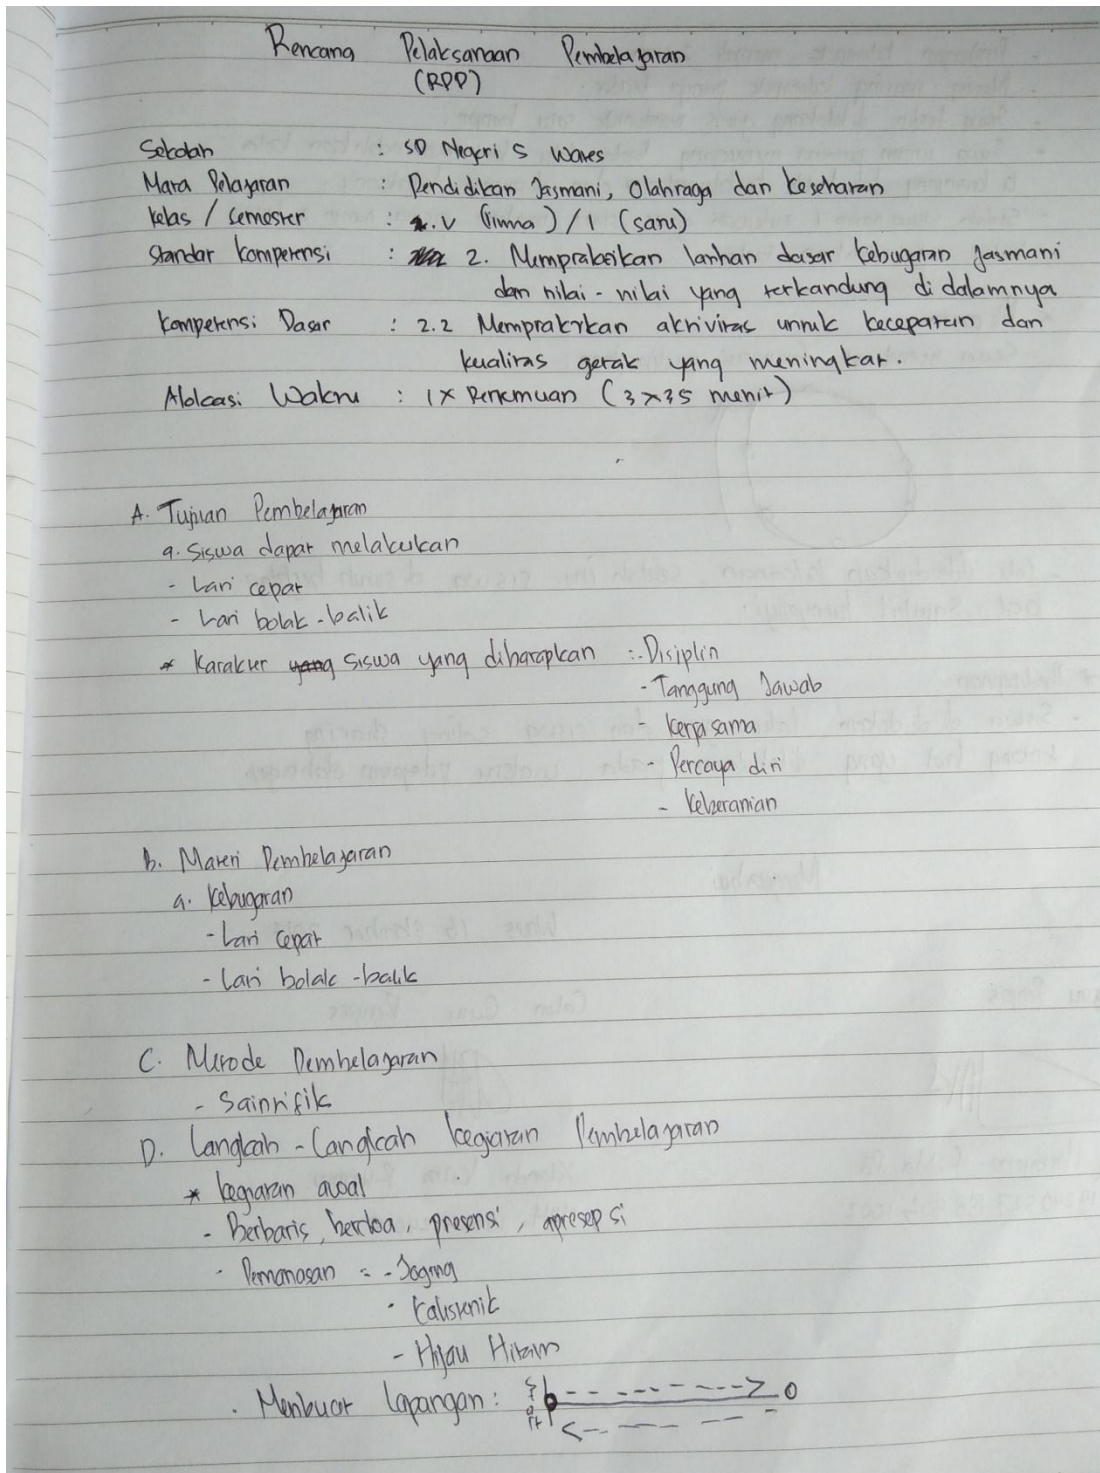 Rencang Pelaksanaan Pembelajaran
(RPP)
Sekolah : SD Negeri 5 Wates
Mata Pelajaran : Pendidikan Jasmani, Olahraga dan Kesehatan
Kelas / Semester : V (lima) / 1 (satu)
Standar Kompetensi : 2. Mempraktikan latihan dasar kebugaran jasmani
dan nilai - nilai yang terkandung di dalamnya
Kompetensi Dasar : 2.2 Mempraktikan aktivitas untuk kecepatan dan
kualitas gerak yang meningkat.
Alokasi Waktu : 1x Pertemuan (3x35 menit)
A. Tujuan Pembelajaran
a. Siswa dapat melakukan
- Lari cepat
- Lari bolak-balik
* Karakter yang siswa yang diharapkan : - Disiplin
- Tanggung Jawab
- Kerja sama
- Percaya diri
- Keberanian
B. Materi Pembelajaran
a. Kebugaran
- Lari cepat
- Lari bolak-balik
C. Metode Pembelajaran
- Saintifik
D. Langkah-Langkah kegiatan Pembelajaran
* kegiatan awal
- Berbaris, berdoa, presensi, apresepsi
- Pemanasan = - Joging
- Kalistenik
- Hijau Hitam
. Menbuat Lapangan : start